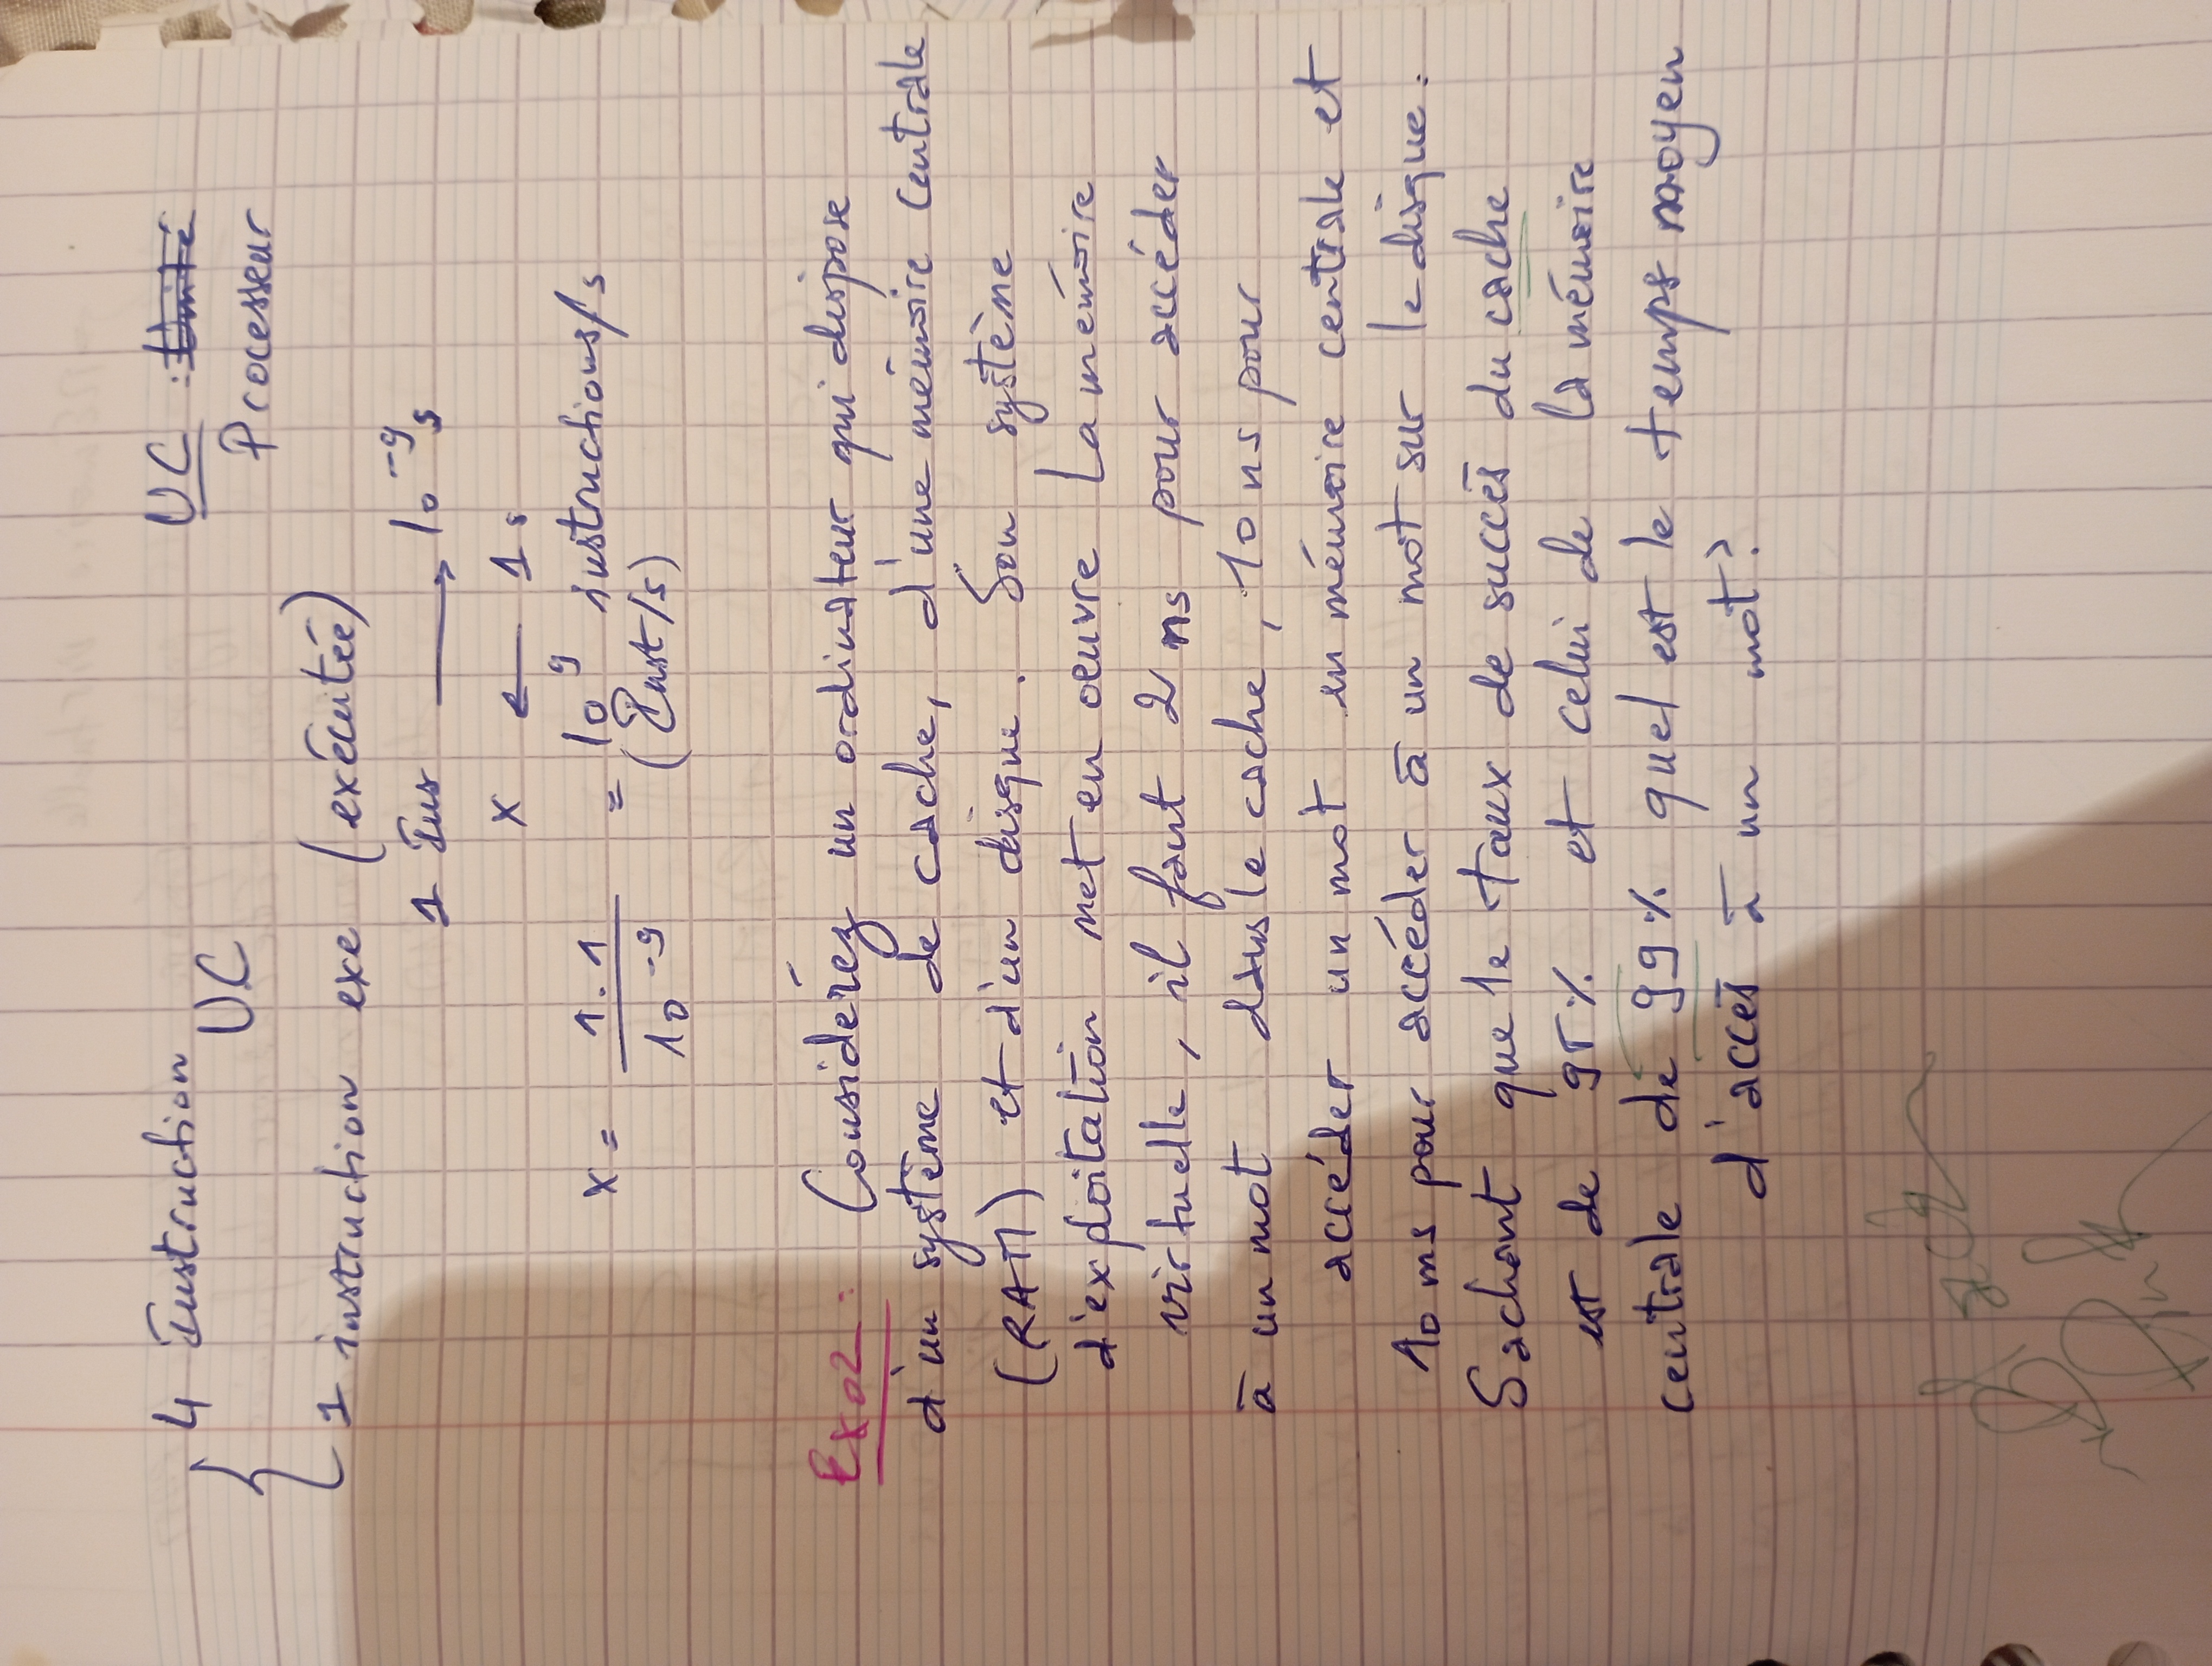 4 Instruction UC
UC : Unité
Processeur
1 instruction exe (exécutée)
1 Ins → 10^-9 s
x ← 1s
x = 1·1 / 10^-9 = 10^9 instructions/s
(Inst/s)
Exo2 : Considérez un ordinateur qui dispose
d'un système de cache, d'une mémoire centrale
(RAM) et d'un disque. Son système
d'exploitation met en œuvre la mémoire
virtuelle, il faut 2 ns pour accéder
à un mot dans le cache, 10 ns pour
accéder un mot en mémoire centrale et
10 ms pour accéder à un mot sur le disque.
Sachant que le taux de succès du cache
est de 95% et celui de la mémoire
centrale de 99% quel est le temps moyen
d'accès à un mot?